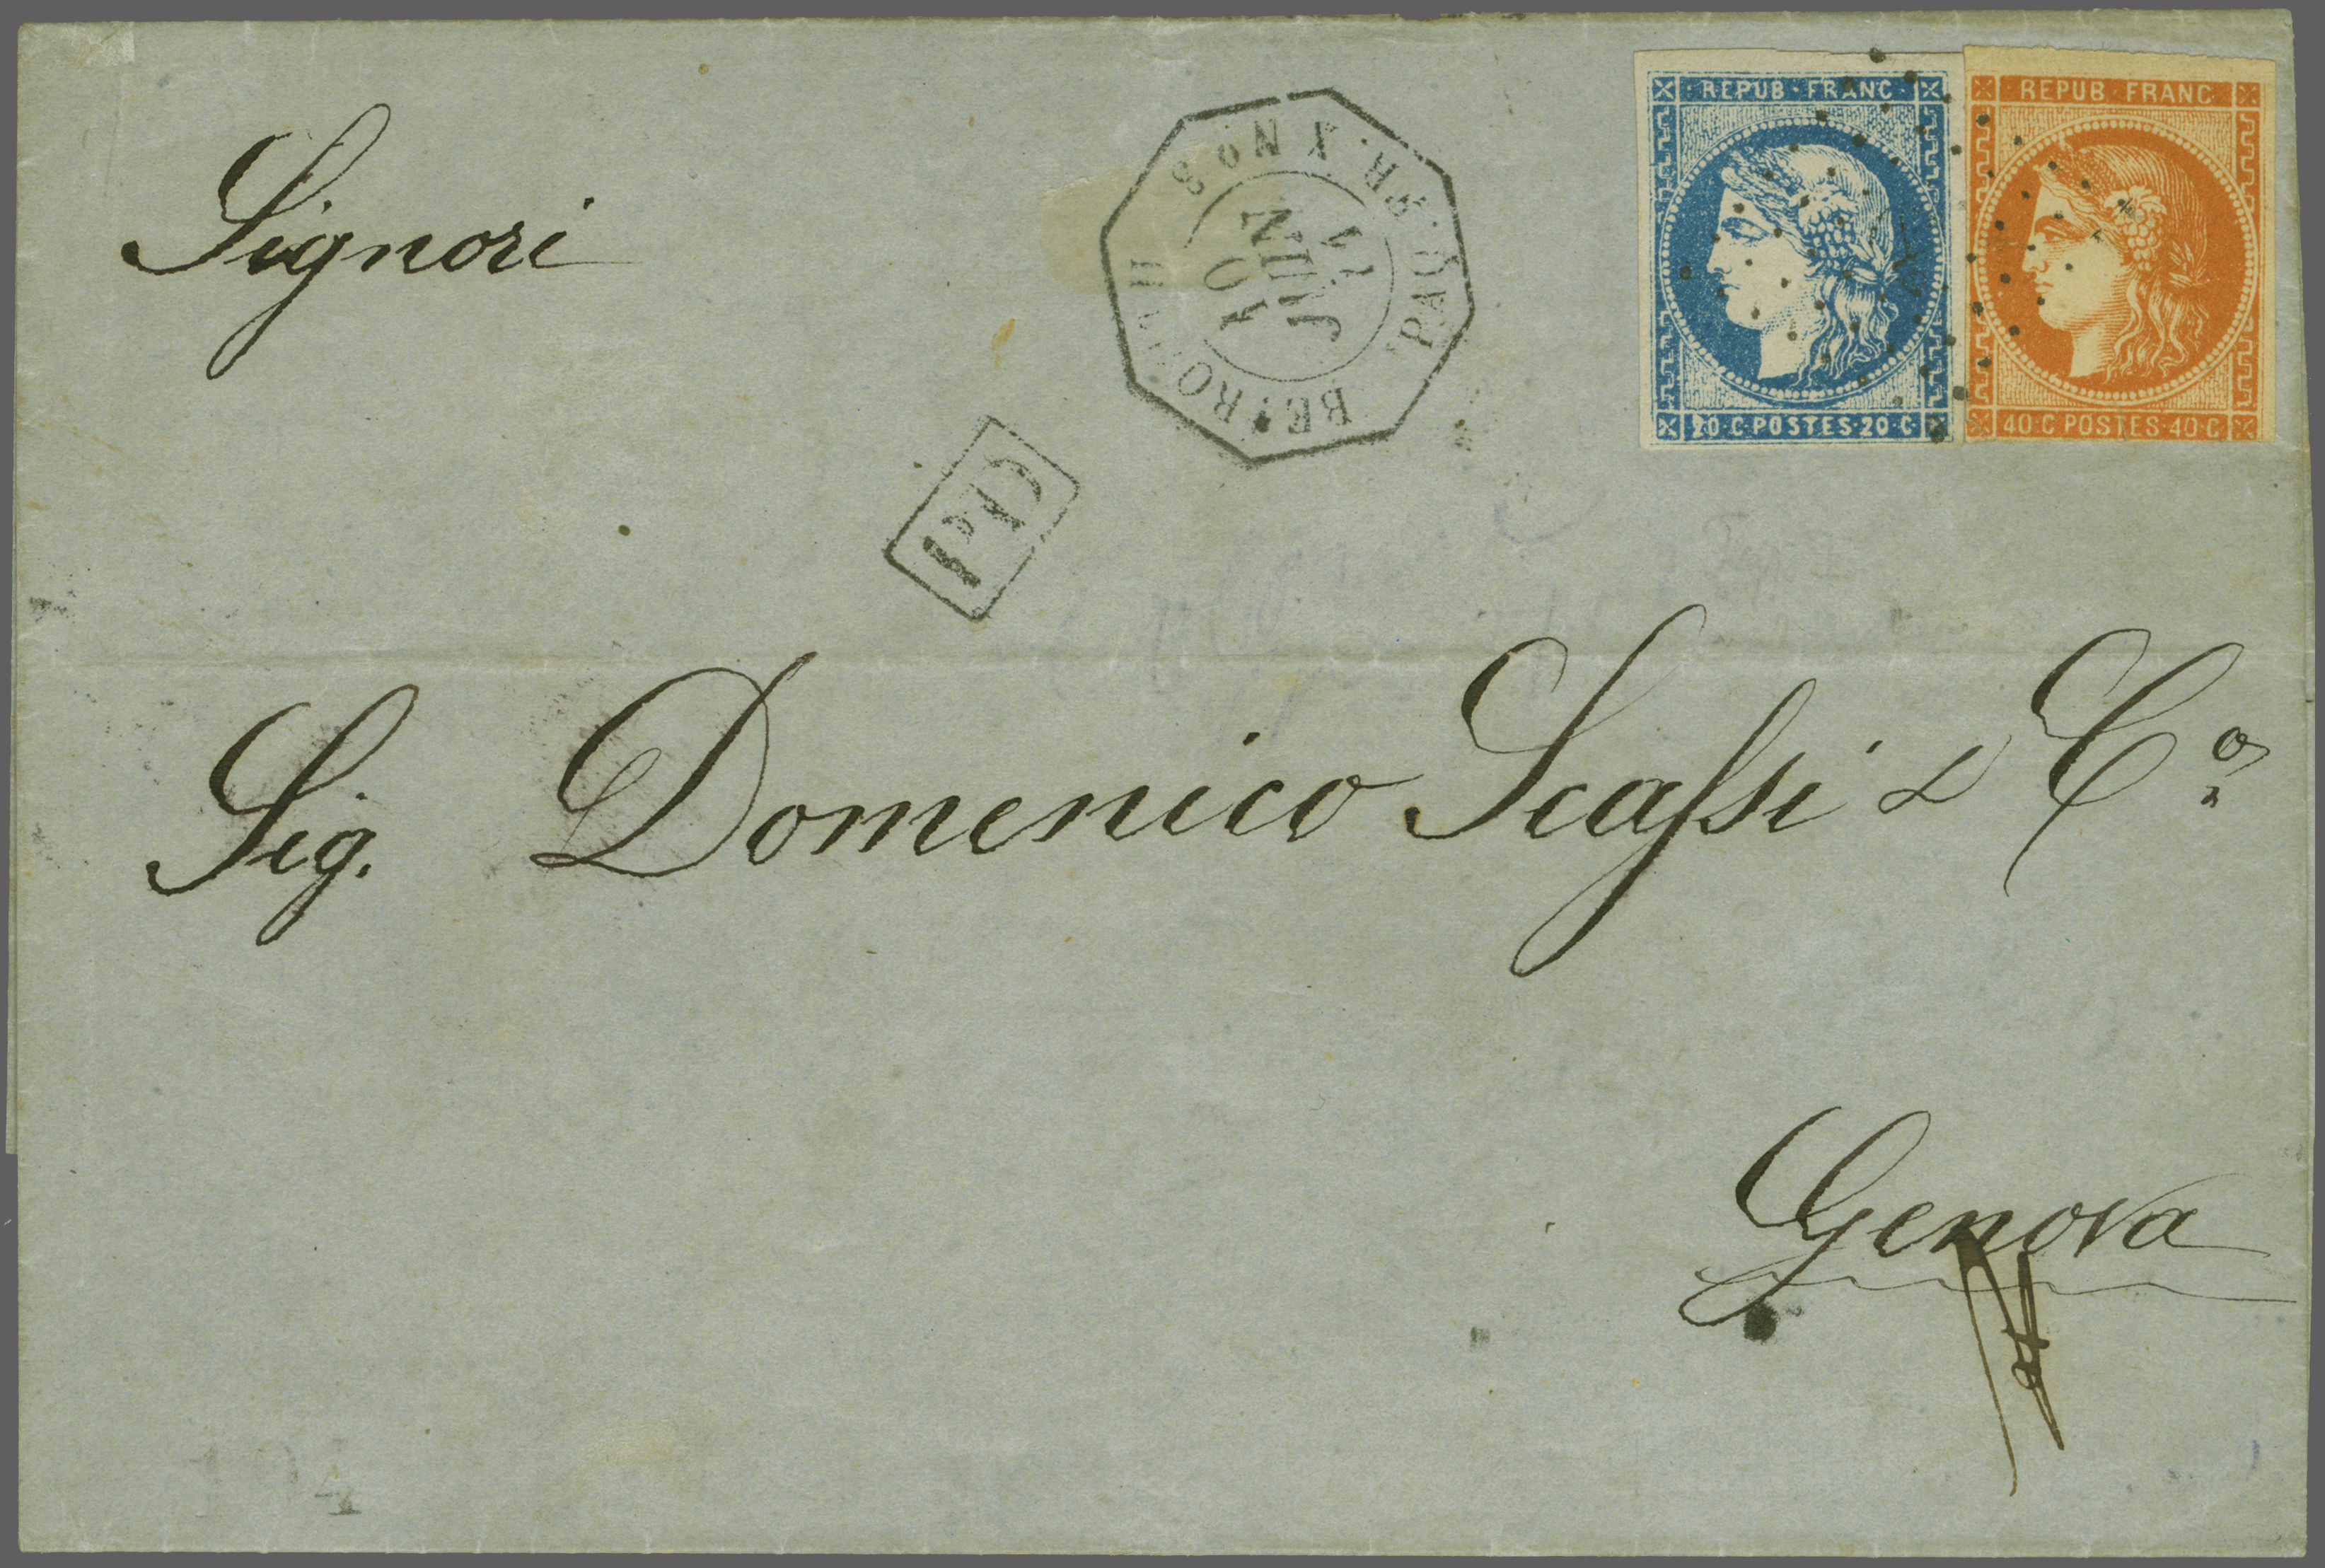 Signori
BEYROUTH
PAQ. FR. X No 3
10
JUIN
71
P.D.
REPUB·FRANC
20·C·POSTES·20·C
REPUB·FRANC
40·C·POSTES·40·C
Sig. Domenico Scassi & Cº
Genova